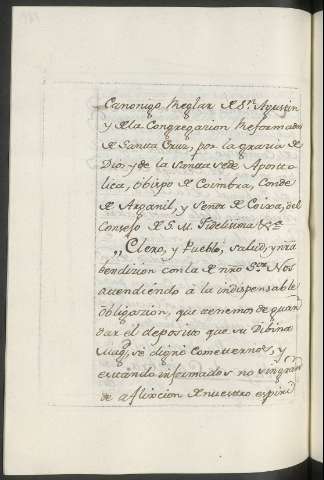 Canonigo Reglar de Sn. Agustin
y de la Congregazion Reformada
de Santa Cruz, por la grazia de
Dios y de la Santa Sede Aposto-
lica, Obispo de Coimbra, Conde
de Arganil, y Señor de Coixa, del
Consejo de S. M. Fidelisima &ca
„Clero, y Pueblo, salud, y nra
bendizion con la de nro Sor. Nos
atendiendo à la indispensable
obligazion, que tenemos de guar
dar el deposito que su Dibina
Magd. se dignò cometternos, y
estando informados no sin gran
de aflixcion de nuestro espiri